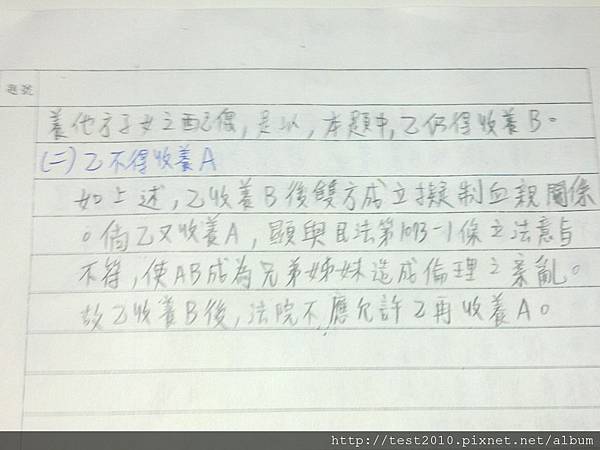 題號
養他方子女之配偶,是以,本題中,乙仍得收養B。
(二)乙不得收養A
如上述,乙收養B後雙方成立擬制血親關係
。倘乙又收養A,顯與民法第1073-1條立法意旨
不符,使AB成為兄弟姊妹造成倫理之紊亂。
故乙收養B後,法院不應允許乙再收養A。
http://test2010.pixnet.net/album